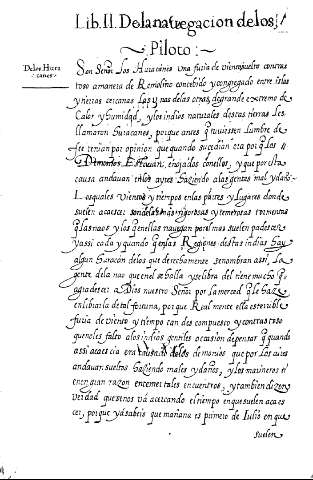 Lib. II. De la navegacion de los
Piloto:
De los Hura
canes.
Son Señor los Huracanes Una furia de viento suelto contras
toso amanera de Remolino concebido y congregado entre islas
y tierras cercanas las Unas de las otras, de grande extremo de
Calor y humidad, y los indios naturales destas tierras les
llamaron huracanes, porque antes q tuviesen lumbre de
fee tenian por opinion que quando sucedian era por los
Demonios enojados conellos, y que por esta
causa andavan en los ayres haziendo alas gentes mal y daño.
Los quales Vientos y tiempos en las partes y lugares donde
suelen acaecer son delas mas rigorosas y temerosas tormentas
que las naos y los que en ellas navegan por el mar suelen padecer.
y assi cada y quando q en las Regiones destas indias hay
algun huracán delos que derechamente se nombran assi, La
gente dela nao que en el se halla y se libra del tiene mucho
agradecer a Dios nuestro Señor por la merced q le haze
en librarla de tal fortuna, por que Realmente ella es terrible
furia de viento y tiempo tan descompuesto y contrastoso
que no les falto alos indios gentiles occasion de pensar q quando
assi acaescia era causado delos demonios que por los aires
andavan sueltos haziendo males y daños, y los marineros
tienen gran razon en temer tales encuentros, y tambien dizen
verdad que se nos va acercando el tiempo en que suelen acaes
cer, porque ya sabeis que mañana es primero de Iulio en que
suelen